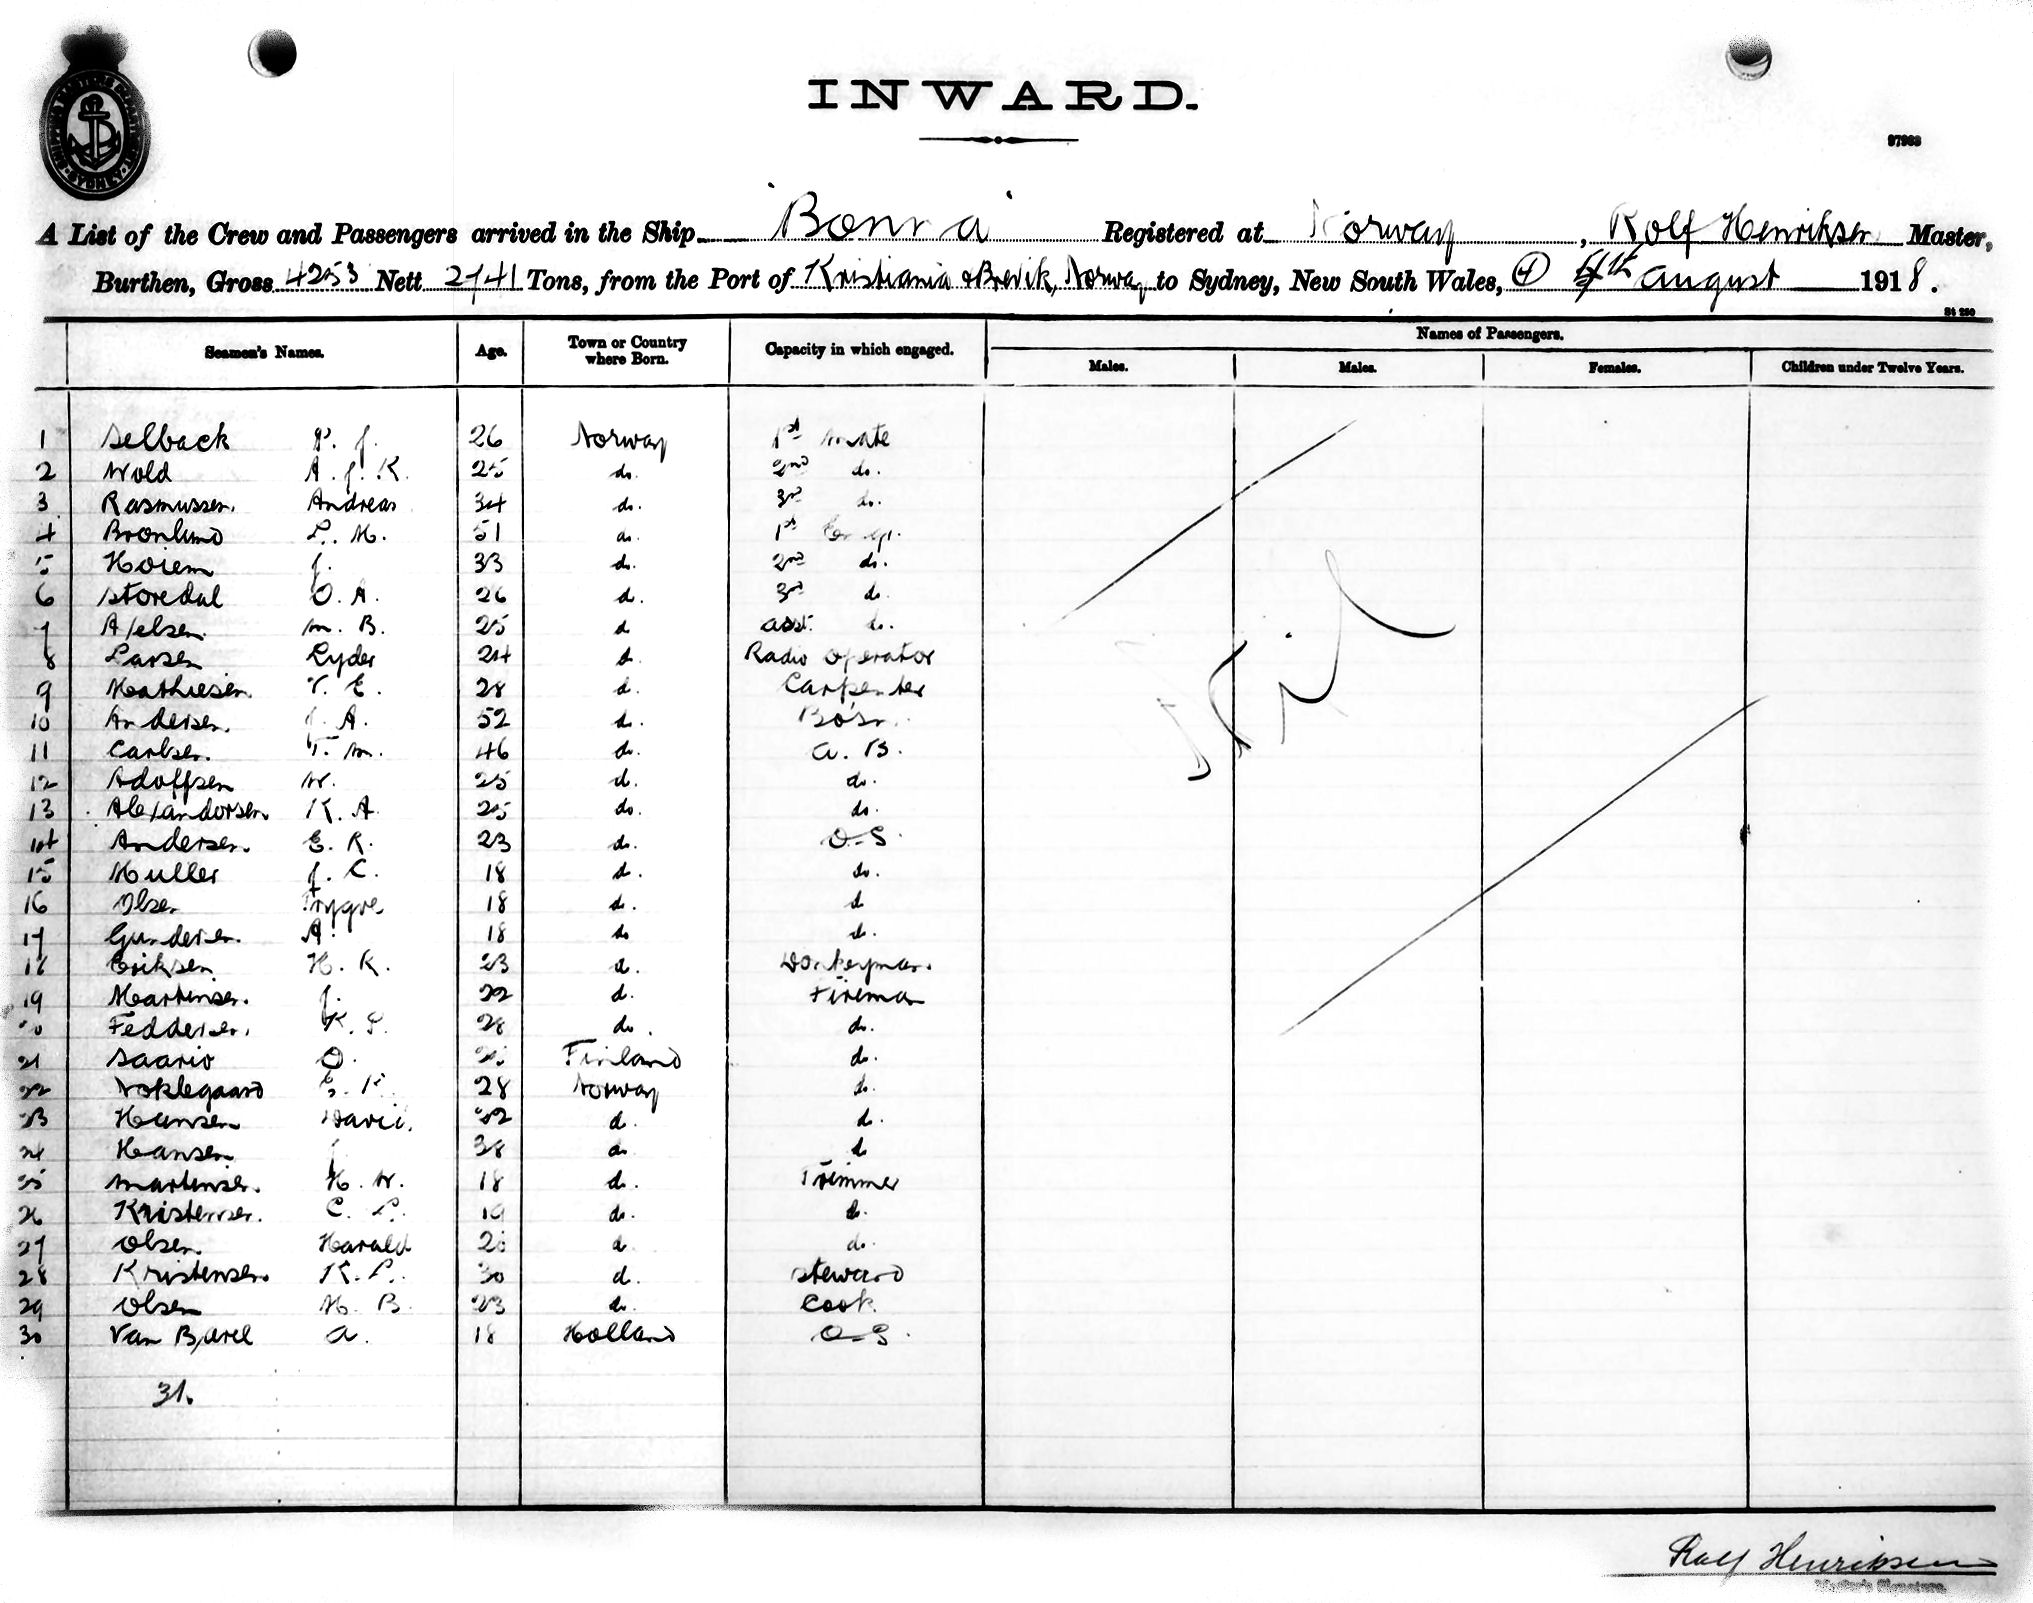 INWARD.
97983
A List of the Crew and Passengers arrived in the Ship "Bonna" Registered at Norway, Rolf Henriksen Master,
Burthen, Gross 4253 Nett 2741 Tons, from the Port of Kristiania & Brevik, Norway to Sydney, New South Wales, 4th august 1918.
St 250
Seamen's Names. Age. Town or Country where Born. Capacity in which engaged. Names of Passengers.
Males. Males. Females. Children under Twelve Years.
1 Selback P. J. 26 Norway 1st mate
2 Wold A. J. K. 25 do. 2nd do.
3 Rasmussen. Andreas 34 do. 3rd do.
4 Bronlund L. M. 51 do. 1st Eng.
5 Hoiem J. 33 do. 2nd do.
6 Storedal O. A. 26 do. 3rd do.
7 M. B. 25 do asst. do.
8 Larsen Lyder 24 do. Radio Operator
9 Mathiesen. T. E. 28 do. Carpenter
10 Andersen. J. A. 52 do. Bo'sn.
11 Carlsen. T. M. 46 do. A. B.
12 Adolfsen W. 25 do. do.
13 Alexandersen. K. A. 25 do. do.
14 Andersen. E. R. 23 do. O-S.
15 Muller J. C. 18 do. do.
16 Olsen Trygve 18 do. do
17 Gundersen. A. 18 do do.
18 Eriksen H. R. 23 do. Donkeyman.
19 Martinsen. J. 22 do. Fireman
20 Feddersen. K. 28 do. do.
21 Saario O. Finland do.
22 Noklegaard 28 Norway do.
23 Hansen David. 22 do. do.
24 Hansen J 38 do do
25 Martinsen. H. W. 18 do. Trimmer
26 Kristensen. C. L. 19 do. do.
27 Olsen. Harald do do.
28 Kristensen. K. L. 30 do. Steward
29 Olsen M. B. 23 do. Cook
30 Van A. 18 Holland O-S.
31.
Nil
Rolf Henriksen
Master's Signature.